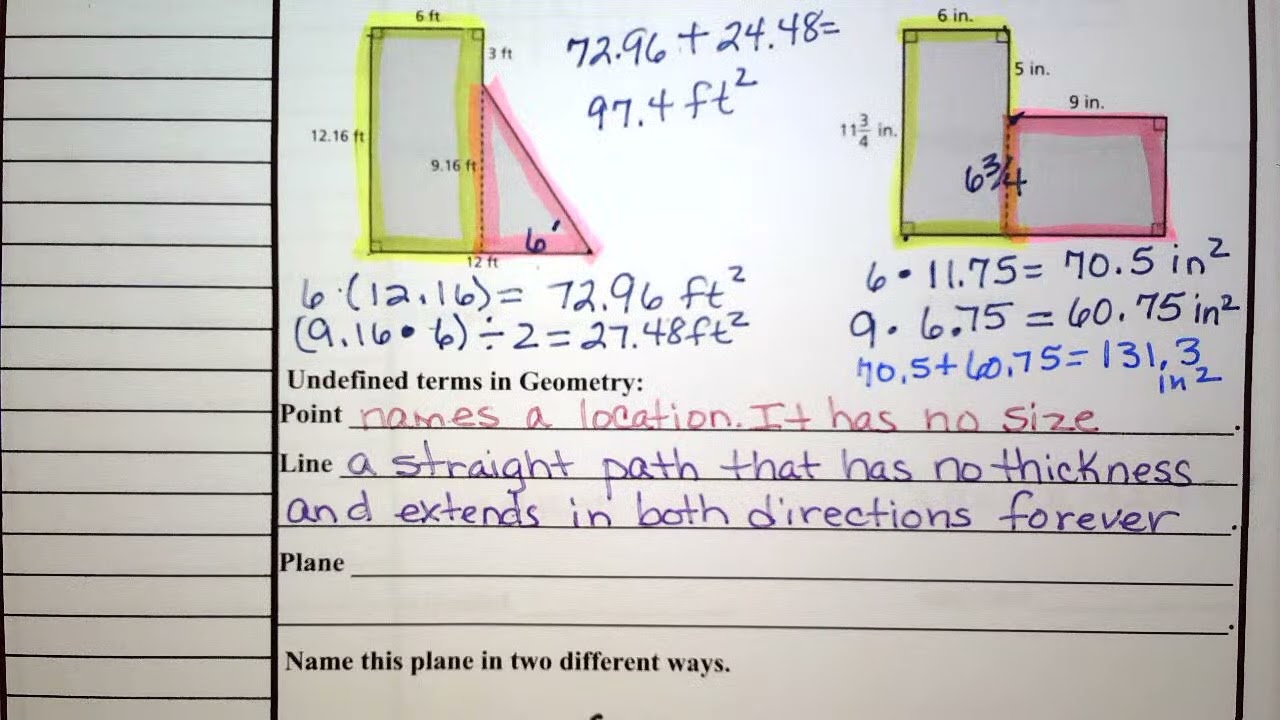 6 ft
3 ft
12.16 ft
9.16 ft
6'
12 ft
72.96 + 24.48=
97.4 ft²
6 · (12.16) = 72.96 ft²
(9.16 • 6) ÷ 2 = 27.48 ft²
6 in.
5 in.
9 in.
11 3/4 in.
6 3/4
6 • 11.75 = 70.5 in²
9 · 6.75 = 60.75 in²
70.5 + 60.75 = 131.3
in²
Undefined terms in Geometry:
Point names a location. It has no size.
Line a straight path that has no thickness
and extends in both directions forever.
Plane
Name this plane in two different ways.